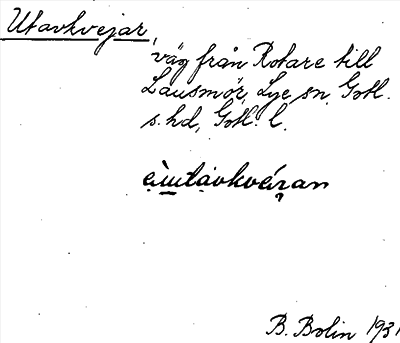 Utavkvejar,
väg från Rotare till
Lausmyr, Lye sn, Gotl.
s. hd, Gotl. l.
B. Bolin 1931